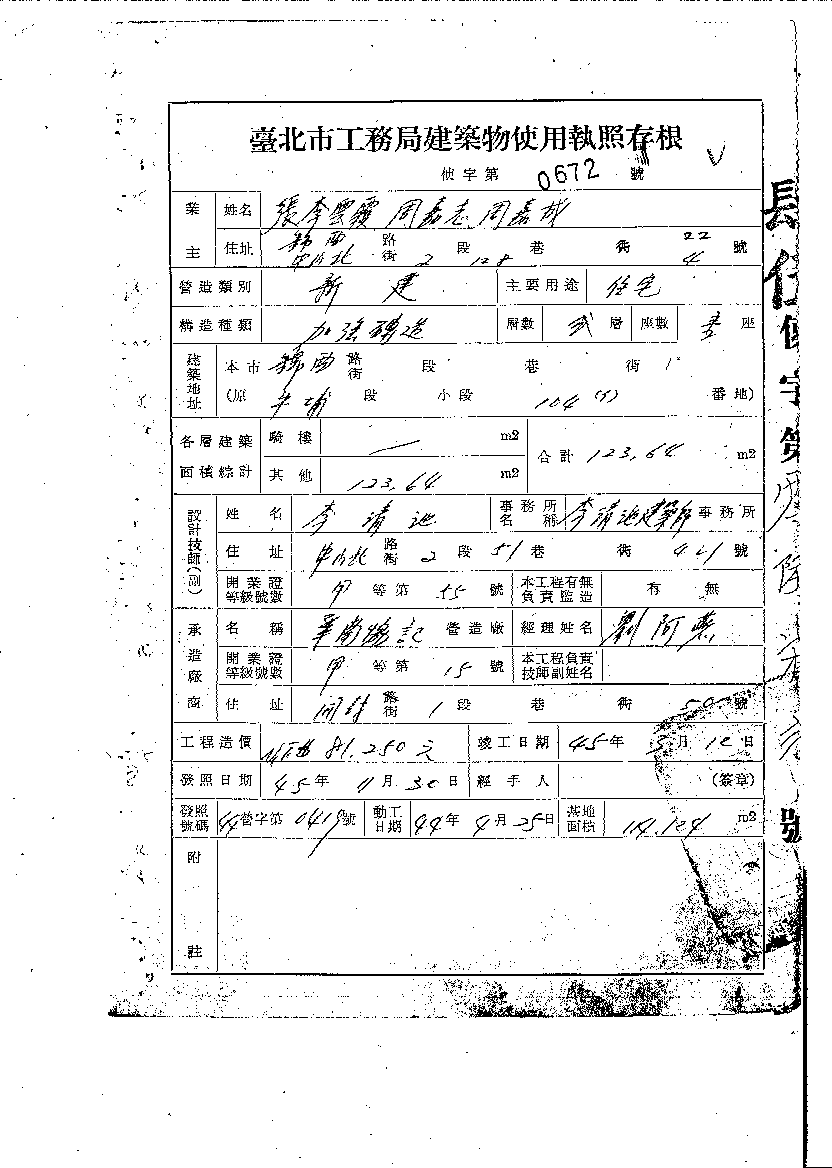 臺北市工務局建築物使用執照存根
使字第 0672 號
業主 姓名 張李雲霞 周嘉志 周嘉斌
住址 錦西 中山北 路街 2 段 128 巷 街 22 4 號
營造類別 新建 主要用途 住宅
構造種類 加強磚造 層數 貳 層 座數 壹 座
建築地址 本市 錦西 路街 段 巷 街 1
(原 牛埔 段 小段 104 番地)
各層建築面積綜計 騎樓 — m2 合計 123.64 m2
其他 123.64 m2
設計技師(副) 姓名 李清池 事務所名稱 李清池建築師 事務所
住址 中山北 路街 2 段 51 巷 街 號
開業證等級號數 甲 等第 55 號 本工程有無負責監造 有 無
承造廠商 名稱 協記 營造廠 經理姓名 劉阿
開業證等級號數 甲 等第 15 號 本工程負責技師副姓名
住址 路街 1 段 巷 街 50 號
工程造價 81.250元 竣工日期 45年 3月 12日
發照日期 45年 11月 30日 經手人 (簽章)
發照號碼 44營字第 0419號 動工日期 44年 4月 25日 基地面積 114.124 m2
附註
長
使字第
號